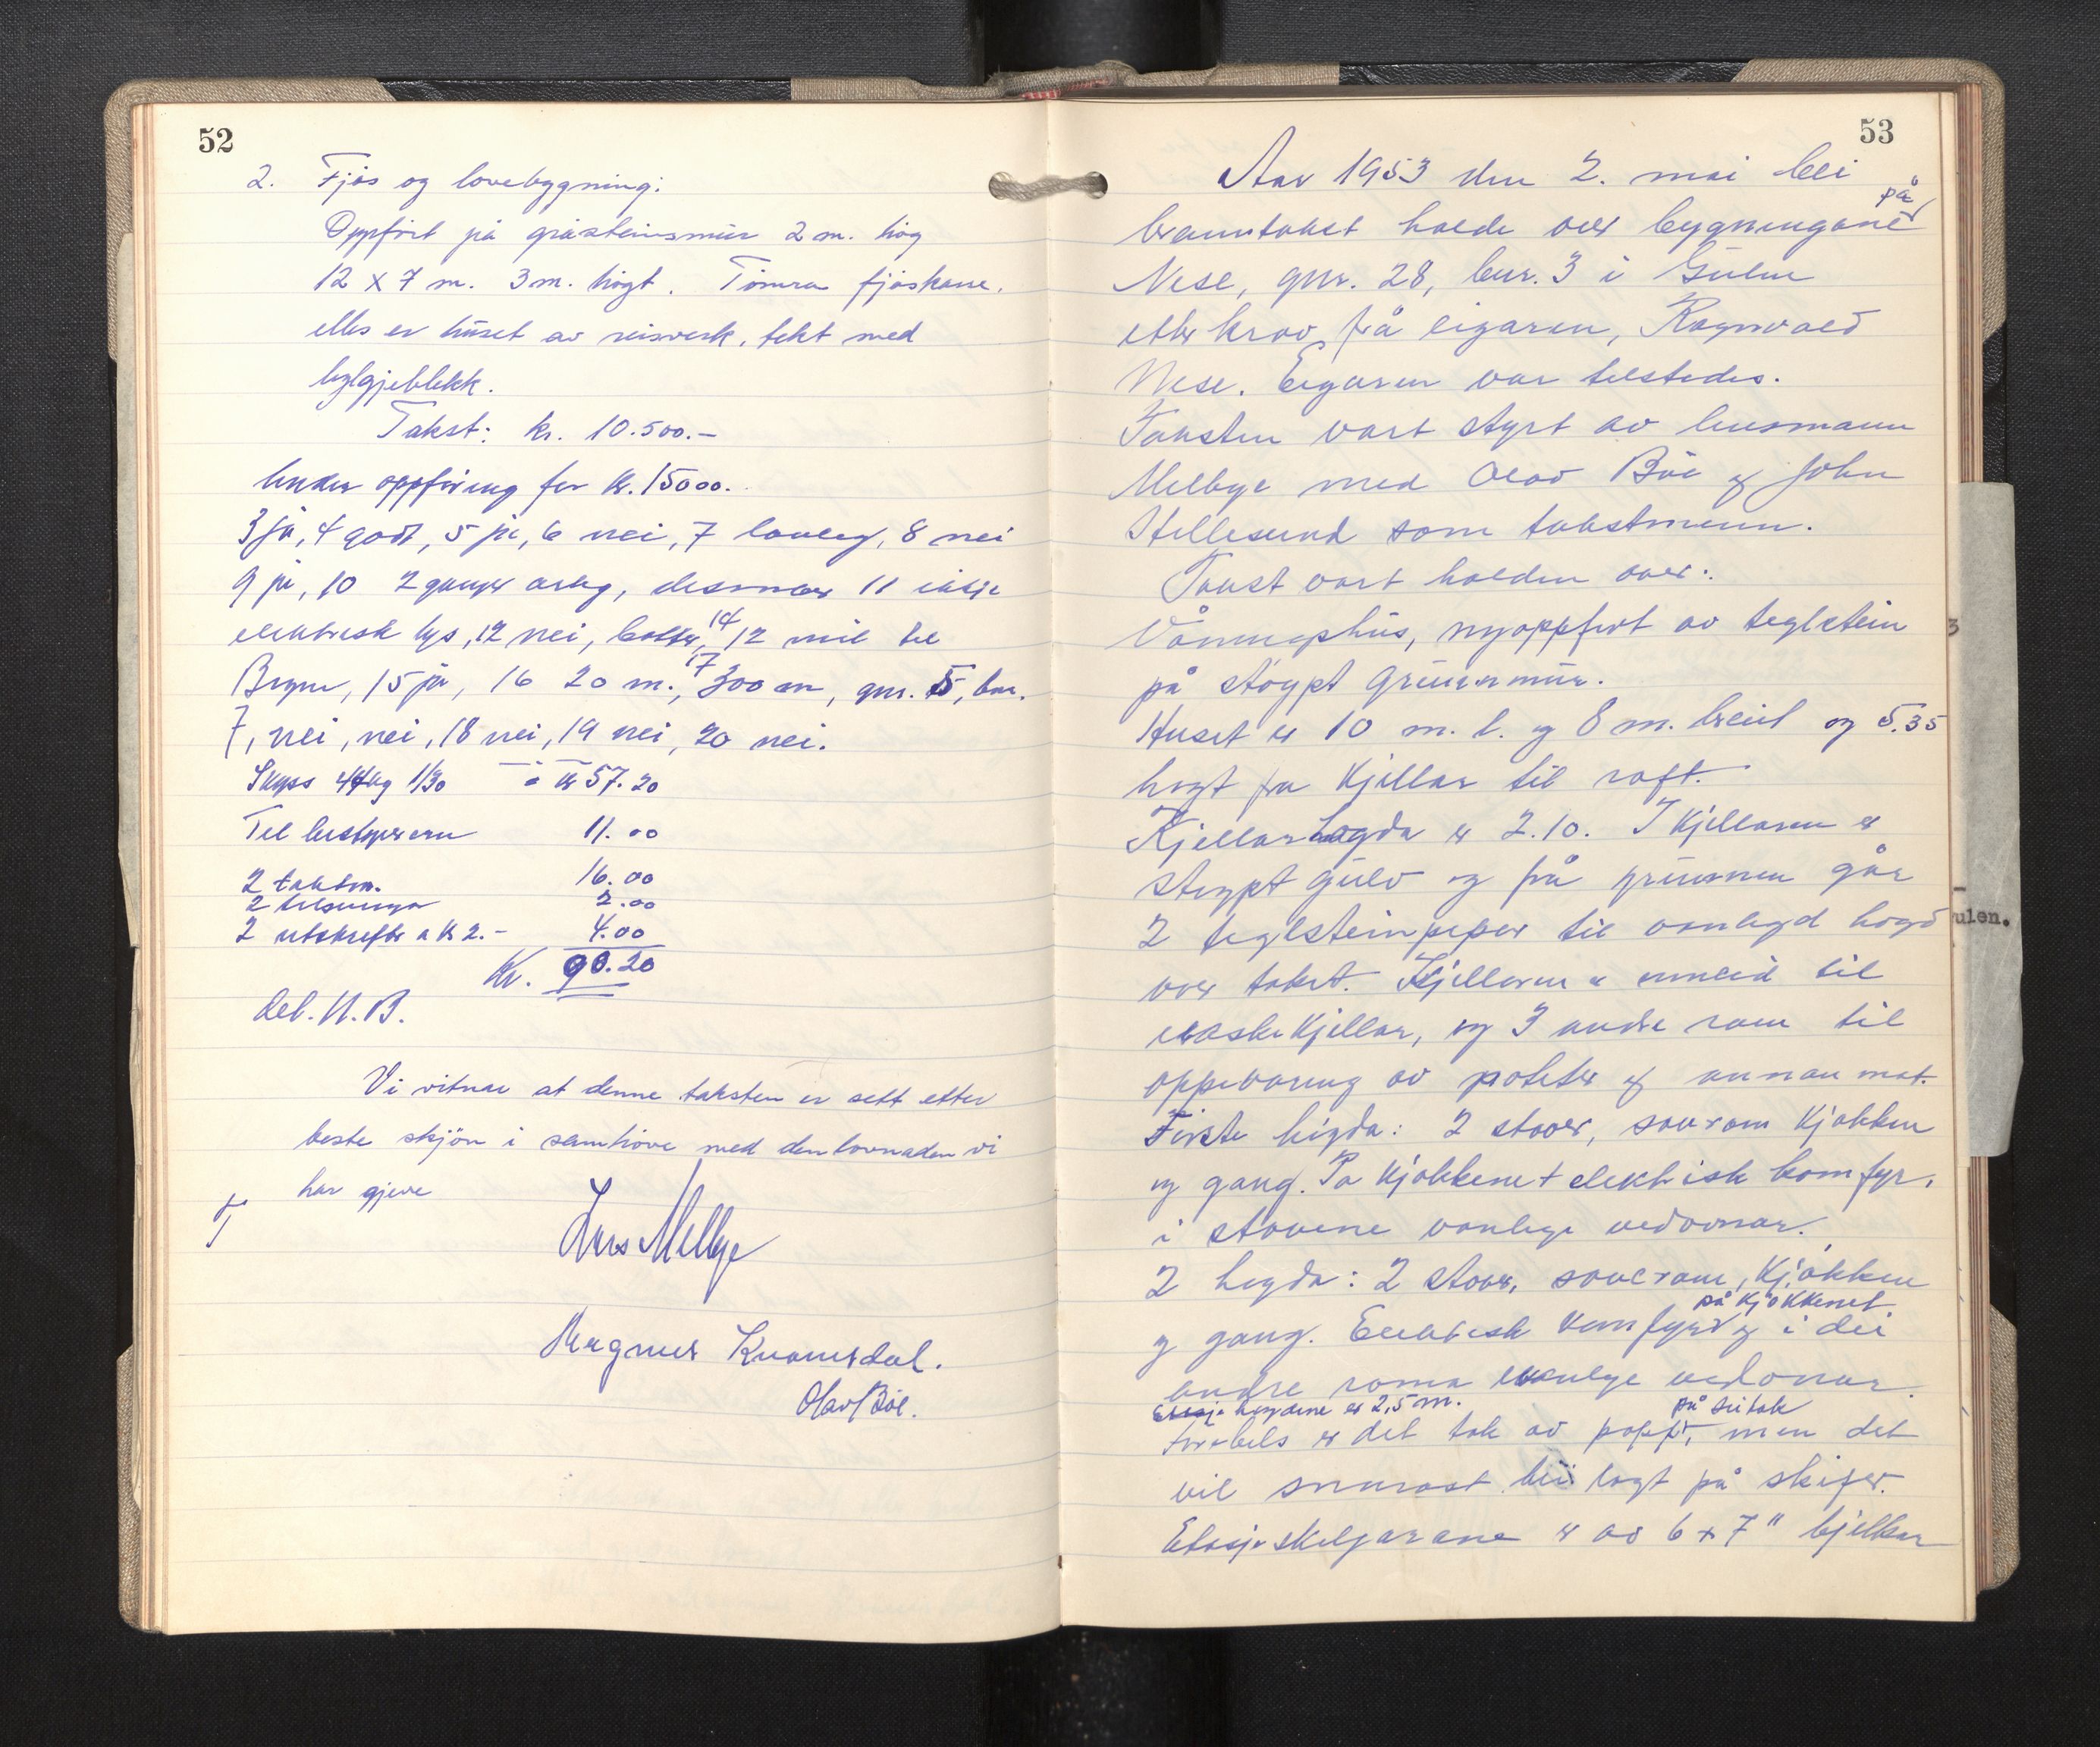 52
2. Fjøs og løvebygning:
Oppført på gråsteinsmur 2 m. høg
12 x 7 m. 3 m. høgt. Tømra fjøskasse.
elles er huset av reisverk, tekt med
bylgjeblekk.
Takst: kr. 10.500.-
Under oppføring for kr. 15000.
3 ja, 4 godt, 5 ja, 6 nei, 7 lovleg, 8 nei
9 ja, 10 2 gonger årleg, 11 ikkje
elektrisk lys, 12 nei, 14 12 mil til
Bergen, 15 ja, 16 20 m., 17 300 m, gnr. 5, bnr.
7, nei, nei, 18 nei, 19 nei, 20 nei.
Skyss 44 kg 1/30 = kr 57.20
Til bestyreren 11.00
2 takstm. 16.00
2 2.00
2 utskrifter a kr 2.- 4.00
Kr. 90.20
Deb. N.B.
Vi vitnar at denne taksten er sett etter
beste skjøn i samhøve med den lovnaden vi
har gjeve
Lars Melbye
Magnus Kvamsdal.
Olav Böe.
53
Aar 1953 den 2. mai blei
på
branntakst halde over bygningane
Nese, gnr. 28, bnr. 3 i Gulen
etter krav frå eigaren, Ragnvald
Nese. Eigaren var tilstedes.
Taksten vart styrt av lensmann
Melbye med Olav Böe og John
Stellesund som takstmenn.
Takst vart halden over:
Våningshus, nyoppført av teglstein
på støypt grunnmur.
Huset er 10 m. l. og 8 m. breid og 5.35
høgt fra kjellar til raft.
Kjellarhøgda er 2.10. I kjellaren er
støypt gulv og frå grunnen går
2 teglsteinpiper til vanlegd høgd
over taket. Kjellaren er innreid til
vaskekjellar, og 3 andre rom til
oppbevaring av poteter og annan mat.
Fyrste høgda: 2 stover, soverom kjøkken
og gang. På kjøkkenet elektrisk komfyr,
i stovene vanlege vedovnar.
2 høgda: 2 stover, soverom, kjøkken
på kjøkkenet.
og gang. Elektrisk komfyr og i dei
andre roma vanlege vedovnar.
Etasjehøgdene er 2,5 m. på sutak
Førebels er det tak av papp, men det
vil snarast bli lagt på skifer.
Etasjeskiljarane er av 6 x 7" bjelkar
ulen.